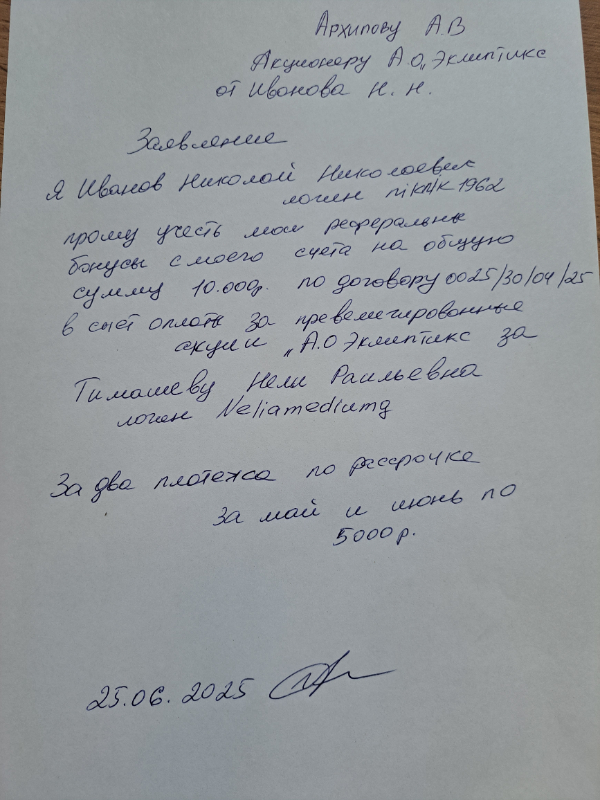 Архипову А.В
Акционеру А.О „Эклиптикс
от Иванова Н. Н.
Заявление
Я Иванов Николай Николаевич
логин nikNik1962
прошу учесть мои реферальные
бонусы с моего счета на общую
сумму 10.000р. по договору 0025/30/04/25
в счет оплаты за превелегированные
акции „А.О Эклиптикс за
Тимашеву Нели Раильевна
логин Neliamediumg
За два платежа по рассрочке
за май и июнь по
5000р.
25.06.2025